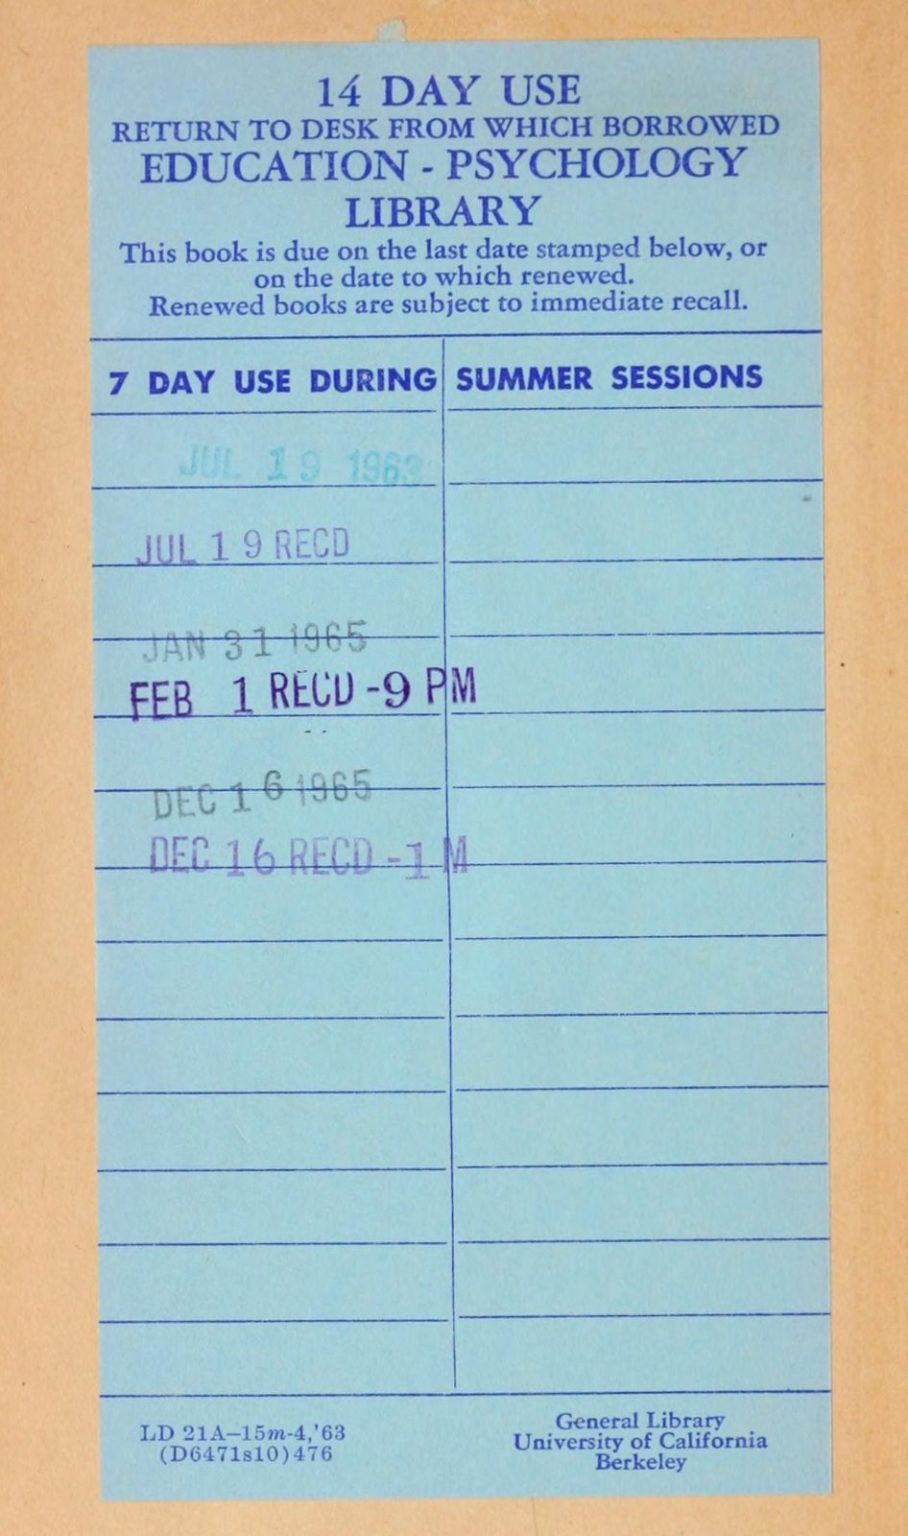 14 DAY USE
RETURN TO DESK FROM WHICH BORROWED
EDUCATION - PSYCHOLOGY
LIBRARY
This book is due on the last date stamped below, or
on the date to which renewed.
Renewed books are subject to immediate recall.
7 DAY USE DURING SUMMER SESSIONS
JUL 19 1963
JUL 19 RECD
JAN 31 1965
FEB 1 RECD -9 PM
DEC 16 1965
DEC 16 RECD -1 M
LD 21A–15m-4,'63
(D6471s10)476
General Library
University of California
Berkeley